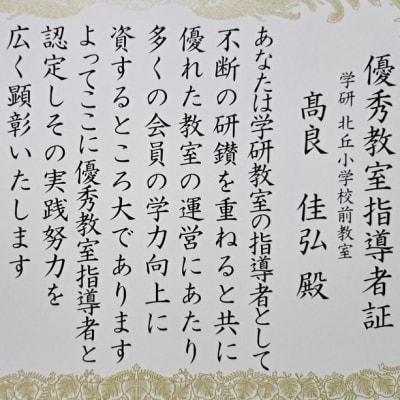 優秀教室指導者証
学研 北丘小学校前教室
髙良 佳弘 殿
あなたは学研教室の指導者として
不断の研鑽を重ねると共に
優れた教室の運営にあたり
多くの会員の学力向上に
資するところ大であります
よってここに優秀教室指導者と
認定しその実践努力を
広く顕彰いたします